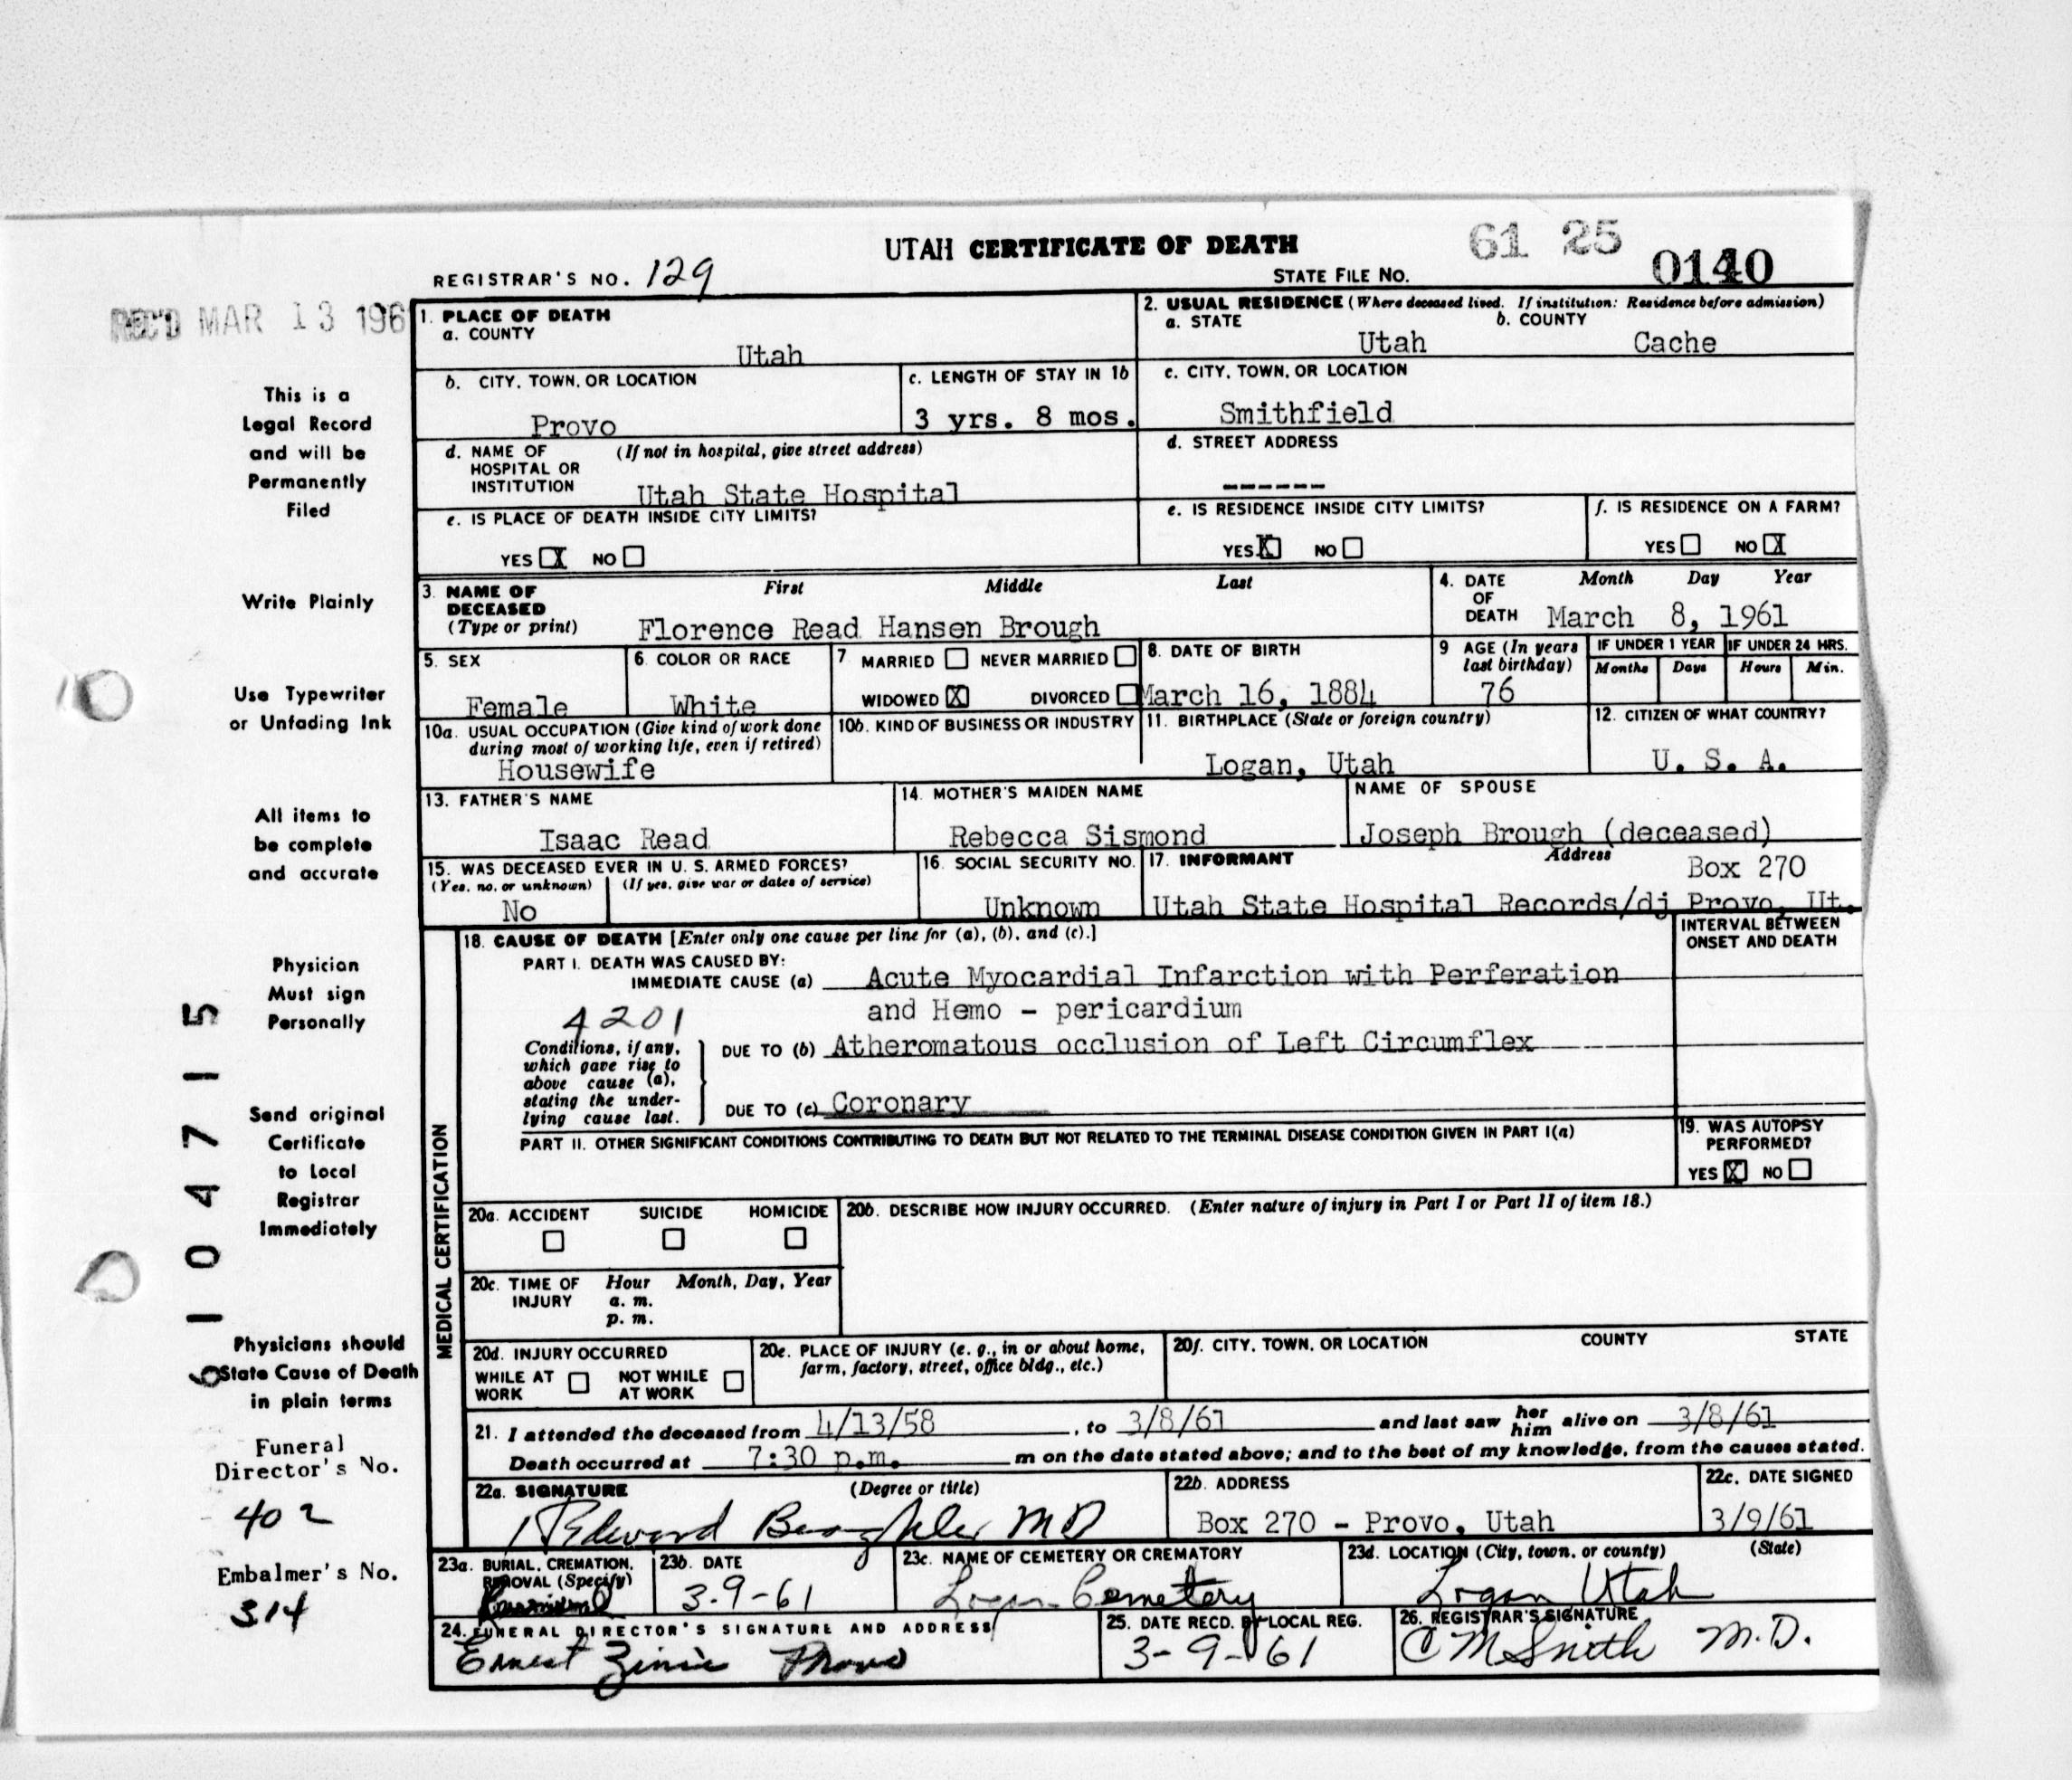 UTAH CERTIFICATE OF DEATH
61 25
0140
REGISTRAR'S NO. 129
STATE FILE NO.
REC'D MAR 13 196
This is a
Legal Record
and will be
Permanently
Filed
Write Plainly
Use Typewriter
or Unfading Ink
All items to
be complete
and accurate
Physician
Must sign
Personally
Send original
Certificate
to Local
Registrar
Immediately
Physicians should
State Cause of Death
in plain terms
Funeral
Director's No.
402
Embalmer's No.
314
6104715
1. PLACE OF DEATH
a. COUNTY
Utah
2. USUAL RESIDENCE (Where deceased lived. If institution: Residence before admission)
a. STATE
Utah
b. COUNTY
Cache
b. CITY, TOWN, OR LOCATION
Provo
c. LENGTH OF STAY IN 1b
3 yrs. 8 mos.
c. CITY, TOWN, OR LOCATION
Smithfield
d. NAME OF HOSPITAL OR INSTITUTION
(If not in hospital, give street address)
Utah State Hospital
d. STREET ADDRESS
------
e. IS PLACE OF DEATH INSIDE CITY LIMITS?
YES X NO
e. IS RESIDENCE INSIDE CITY LIMITS?
YES X NO
f. IS RESIDENCE ON A FARM?
YES NO X
3. NAME OF DECEASED (Type or print)
First Middle Last
Florence Read Hansen Brough
4. DATE OF DEATH
Month Day Year
March 8, 1961
5. SEX
Female
6. COLOR OR RACE
White
7. MARRIED NEVER MARRIED
WIDOWED X DIVORCED
8. DATE OF BIRTH
March 16, 1884
9 AGE (In years last birthday)
76
IF UNDER 1 YEAR
Months Days
IF UNDER 24 HRS.
Hours Min.
10a. USUAL OCCUPATION (Give kind of work done during most of working life, even if retired)
Housewife
10b. KIND OF BUSINESS OR INDUSTRY
11. BIRTHPLACE (State or foreign country)
Logan, Utah
12. CITIZEN OF WHAT COUNTRY?
U. S. A.
13. FATHER'S NAME
Isaac Read
14. MOTHER'S MAIDEN NAME
Rebecca Sismond
NAME OF SPOUSE
Joseph Brough (deceased)
15. WAS DECEASED EVER IN U. S. ARMED FORCES?
(Yes, no, or unknown) (If yes, give war or dates of service)
No
16. SOCIAL SECURITY NO.
Unknown
17. INFORMANT Address
Box 270
Utah State Hospital Records/dj Provo, Ut.
MEDICAL CERTIFICATION
18. CAUSE OF DEATH [Enter only one cause per line for (a), (b), and (c).]
INTERVAL BETWEEN ONSET AND DEATH
PART I. DEATH WAS CAUSED BY:
IMMEDIATE CAUSE (a) Acute Myocardial Infarction with Perferation
and Hemo - pericardium
4201
Conditions, if any, which gave rise to above cause (a), stating the underlying cause last.
DUE TO (b) Atheromatous occlusion of Left Circumflex
DUE TO (c) Coronary
PART II. OTHER SIGNIFICANT CONDITIONS CONTRIBUTING TO DEATH BUT NOT RELATED TO THE TERMINAL DISEASE CONDITION GIVEN IN PART I(a)
19. WAS AUTOPSY PERFORMED?
YES X NO
20a. ACCIDENT SUICIDE HOMICIDE
20b. DESCRIBE HOW INJURY OCCURRED. (Enter nature of injury in Part I or Part II of item 18.)
20c. TIME OF INJURY
Hour Month, Day, Year
a. m.
p. m.
20d. INJURY OCCURRED
WHILE AT WORK NOT WHILE AT WORK
20e. PLACE OF INJURY (e. g., in or about home, farm, factory, street, office bldg., etc.)
20f. CITY, TOWN, OR LOCATION COUNTY STATE
21. I attended the deceased from 4/13/58, to 3/8/61 and last saw her him alive on 3/8/61
Death occurred at 7:30 p.m. m on the date stated above; and to the best of my knowledge, from the causes stated.
22a. SIGNATURE (Degree or title)
Edward MD
22b. ADDRESS
Box 270 - Provo, Utah
22c. DATE SIGNED
3/9/61
23a. BURIAL, CREMATION, REMOVAL (Specify)
23b. DATE
3-9-61
23c. NAME OF CEMETERY OR CREMATORY
Logan Cemetery
23d. LOCATION (City, town, or county) (State)
Logan Utah
24. FUNERAL DIRECTOR'S SIGNATURE AND ADDRESS
Ernest Provo
25. DATE RECD. BY LOCAL REG.
3-9-61
26. REGISTRAR'S SIGNATURE
C M Smith M.D.